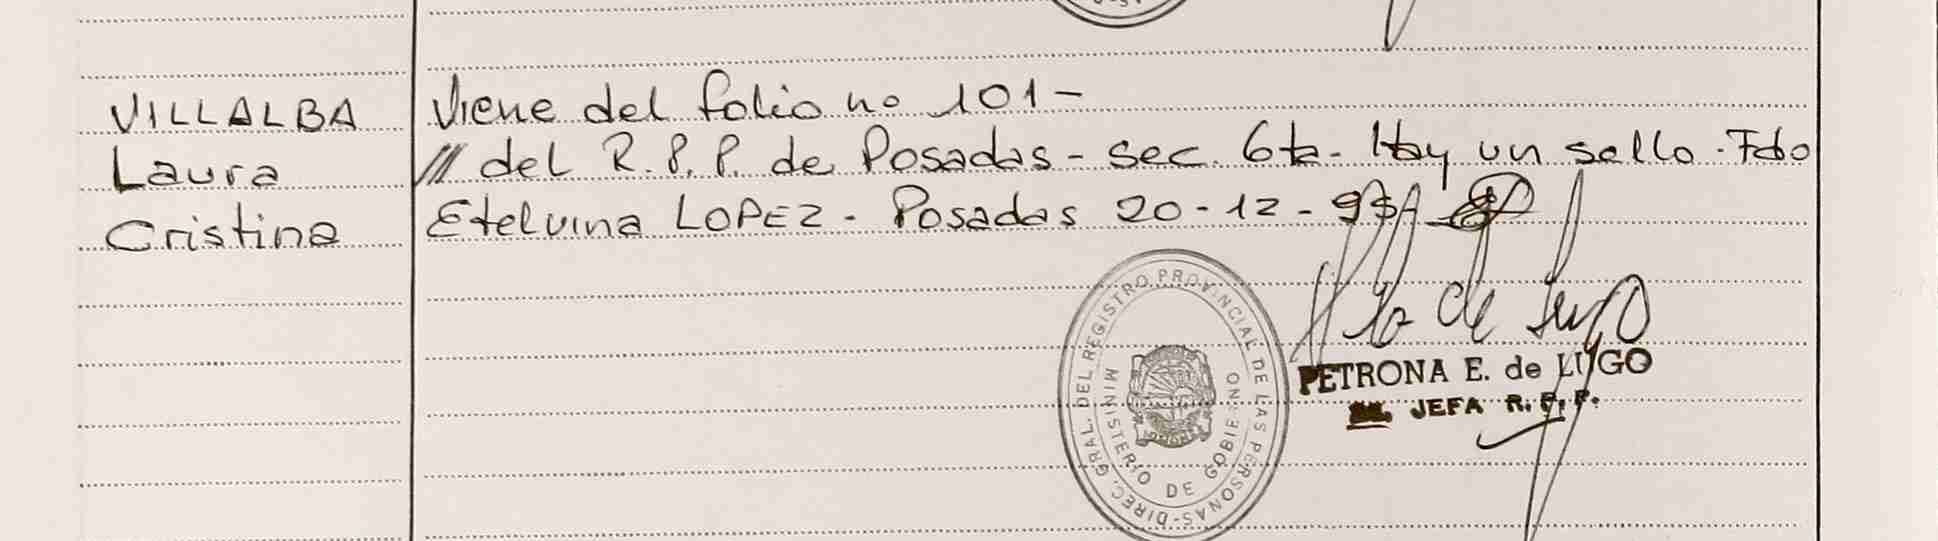 VILLALBA
Laura
Cristina
Viene del folio no 101-
/// del R.P.P. de Posadas - sec. 6ta - Hay un sello. Fdo
Etelvina LOPEZ - Posadas 20-12-
DIREC. GRAL. DEL REGISTRO PROVINCIAL DE LAS PERSONAS-
MINISTERIO DE GOBIERNO
de Lugo
PETRONA E. de LUGO
JEFA R. P. P.